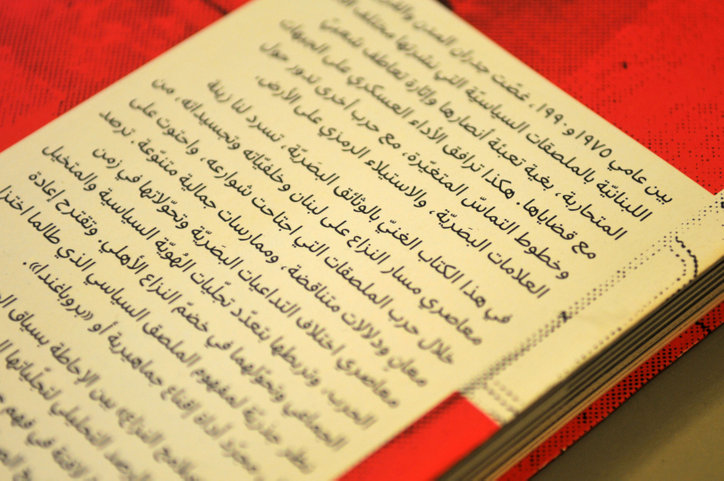 بين عامي ١٩٧٥ و١٩٩٠، غصّت جدران المدن والقرى
اللبنانيّة بالملصقات السياسيّة التي نشرتها مختلف
المتحاربة، بغية تعبئة أنصارها وإثارة تعاطف شعبيّ
مع قضاياها. هكذا ترافق الأداء العسكري على الجبهات
وخطوط التماسّ المتغيّرة، مع حرب أخرى تدور حول
العلامات البصريّة، والاستيلاء الرمزي على الأرض.
في هذا الكتاب الغنيّ بالوثائق البصريّة، تسرد لنا زينة
معاصري مسار النزاع على لبنان وخلفيّاته وتجسيداته، من
خلال حرب الملصقات التي اجتاحت شوارعه، واحتوت على
معانٍ ودلالات متناقضة، وممارسات جمالية متنوّعة. ترصد
معاصري اختلاف التداعيات البصريّة وتحوّلاتها في زمن
الحرب، وتربطها بتعدّد تجلّيات الهُويّة السياسية والمتخيل
الجماعي وتحوّلهما في خضمّ النزاع الأهلي. وتقترح إعادة
نظر جذريّة لمفهوم الملصق السياسي الذي طالما اختزل
مجرّد أداة إقناع جماهيرية أو «بروباغندا».
ملامح النزاع، بين الإحاطة بسياق
الرصد التحليلي لتجلّياتها
في فهم